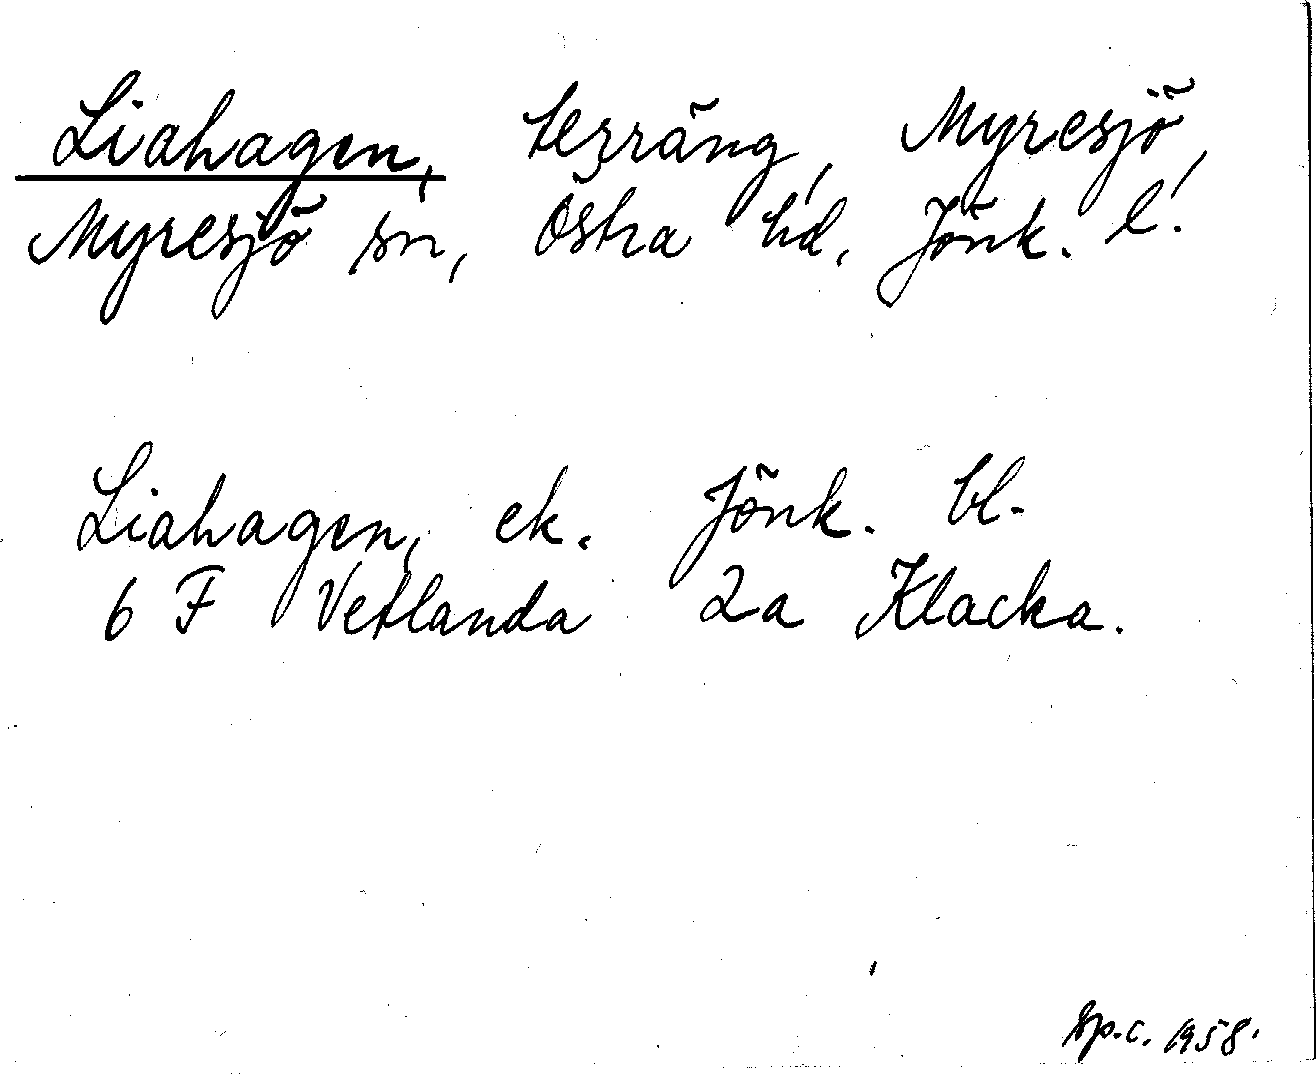 Liahagen, terräng, Myresjö,
Myresjö sn, Östra hd, Jönk. l.
Liahagen, ek. Jönk. bl.
6 F Vetlanda 2a Klacka.
Sp.c. 1958.